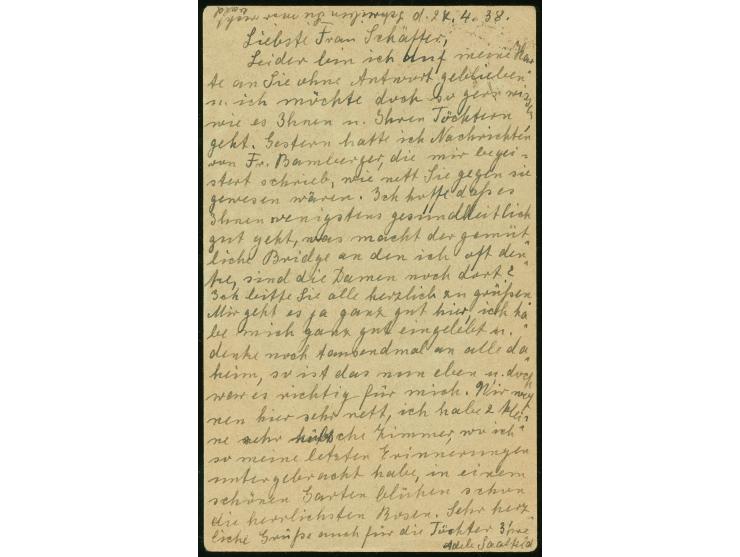 d. 27. 4. 38.
Liebste Frau Schäffer,
Leider bin ich auf meine Kar
te an Sie ohne Antwort geblieben
u. ich möchte doch so gern wissen
wie es Ihnen u. Ihren Töchtern
geht. Gestern hatte ich Nachrichten
von Fr. Bamberger, die mir begei-
stert schrieb, wie nett Sie gegen sie
gewesen wären. Ich hoffe daß es
Ihnen wenigstens gesundheitlich
gut geht, was macht der gemüt
liche Bridge an den ich oft den"
ke, sind die Damen noch dort?
Ich bitte Sie alle herzlich zu grüßen
Mir geht es ja ganz gut hier, ich ha
be mich ganz gut eingelebt u."
denke noch tausendmal an alle da
heim, so ist das nun eben u. doch
war es richtig für mich. Wir woh
nen hier sehr nett, ich habe 2 klei"
ne sehr hübsche Zimmer, wo ich"
so meine letzten Erinnerungen
untergebracht habe, in einem
schönen Garten blühen schon
die herrlichsten Rosen. Sehr herz
liche Grüße auch für die Töchter Ihre
Adele Saalfeld